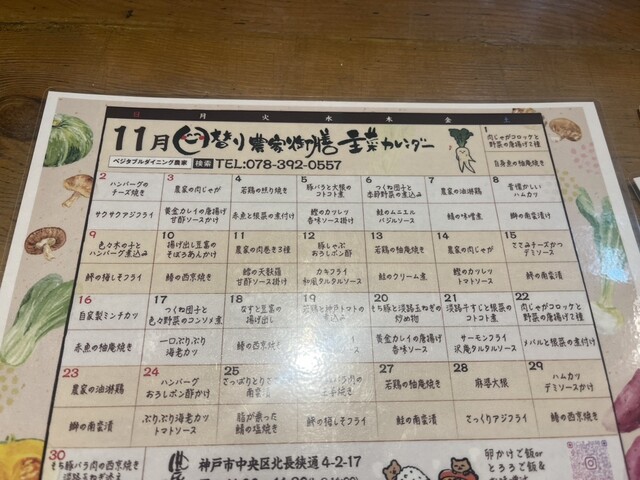 日 月 火 水 木 金 土
11月 日替り農家御膳 主菜カレンダー
ベジタブルダイニング農家 検索 TEL:078-392-0557
1
肉じゃがコロッケと
野菜の唐揚げ2種
白身魚の柚庵焼き
2 3 4 5 6 7 8
ハンバーグの
チーズ焼き
農家の肉じゃが
若鶏の照り焼き
豚バラと大根の
コトコト煮
つくね団子と
季節野菜の煮込み
農家の油淋鶏
昔懐かしい
ハムカツ
サクサクアジフライ
黄金カレイの唐揚げ
甘酢ソースかけ
赤魚と根菜の煮付け
鰹のカツレツ
香味ソース掛け
鮭のムニエル
バジルソース
鯖の味噌煮
鰤の南蛮漬け
9 10 11 12 13 14 15
色々木の子と
ハンバーグ煮込み
揚げ出し豆富の
そぼろあんかけ
農家の肉巻き3種
豚しゃぶ
おろしポン酢
若鶏の柚庵焼き
農家の肉じゃが
ささみチーズかつ
デミソース
鰺の梅しそフライ
鯖の西京焼き
鱈の天麩羅
甘酢ソース掛け
カキフライ
和風タルタルソース
鮭のクリーム煮
鰹のカツレツ
トマトソース
鰤の南蛮漬け
16 17 18 19 20 21 22
自家製ミンチカツ
つくね団子と
色々野菜のコンソメ煮
なすと豆富の
揚げ出し
若鶏と神戸トマトの
煮込み
ねぎ豚と淡路玉ねぎの
炒め物
淡路干すじと根菜の
コトコト煮
肉じゃがコロッケと
野菜の唐揚げ2種
赤魚の柚庵焼き
一口ぷりぷり
海老カツ
鯖の西京焼き
ソース
黄金カレイの唐揚げ
香味ソース
サーモンフライ
沢庵タルタルソース
メバルと根菜の煮付け
23 24 25 27 28 29
農家の油淋鶏
ハンバーグ
おろしポン酢かけ
さっぱりとり
南蛮
バラ肉の
若鶏の柚庵焼き
麻婆大根
ハムカツ
デミソースかけ
鰤の南蛮漬け
ぷりぷり海老カツ
トマトソース
脂が乗った
鯖の塩焼き
鰺の梅しそフライ
鮭の南蛮漬け
さっくりアジフライ
鯖の西京焼き
30
豚バラ肉の西京焼き
神戸市中央区北長狭通4-2-17
卵かけご飯or
とろろご飯&